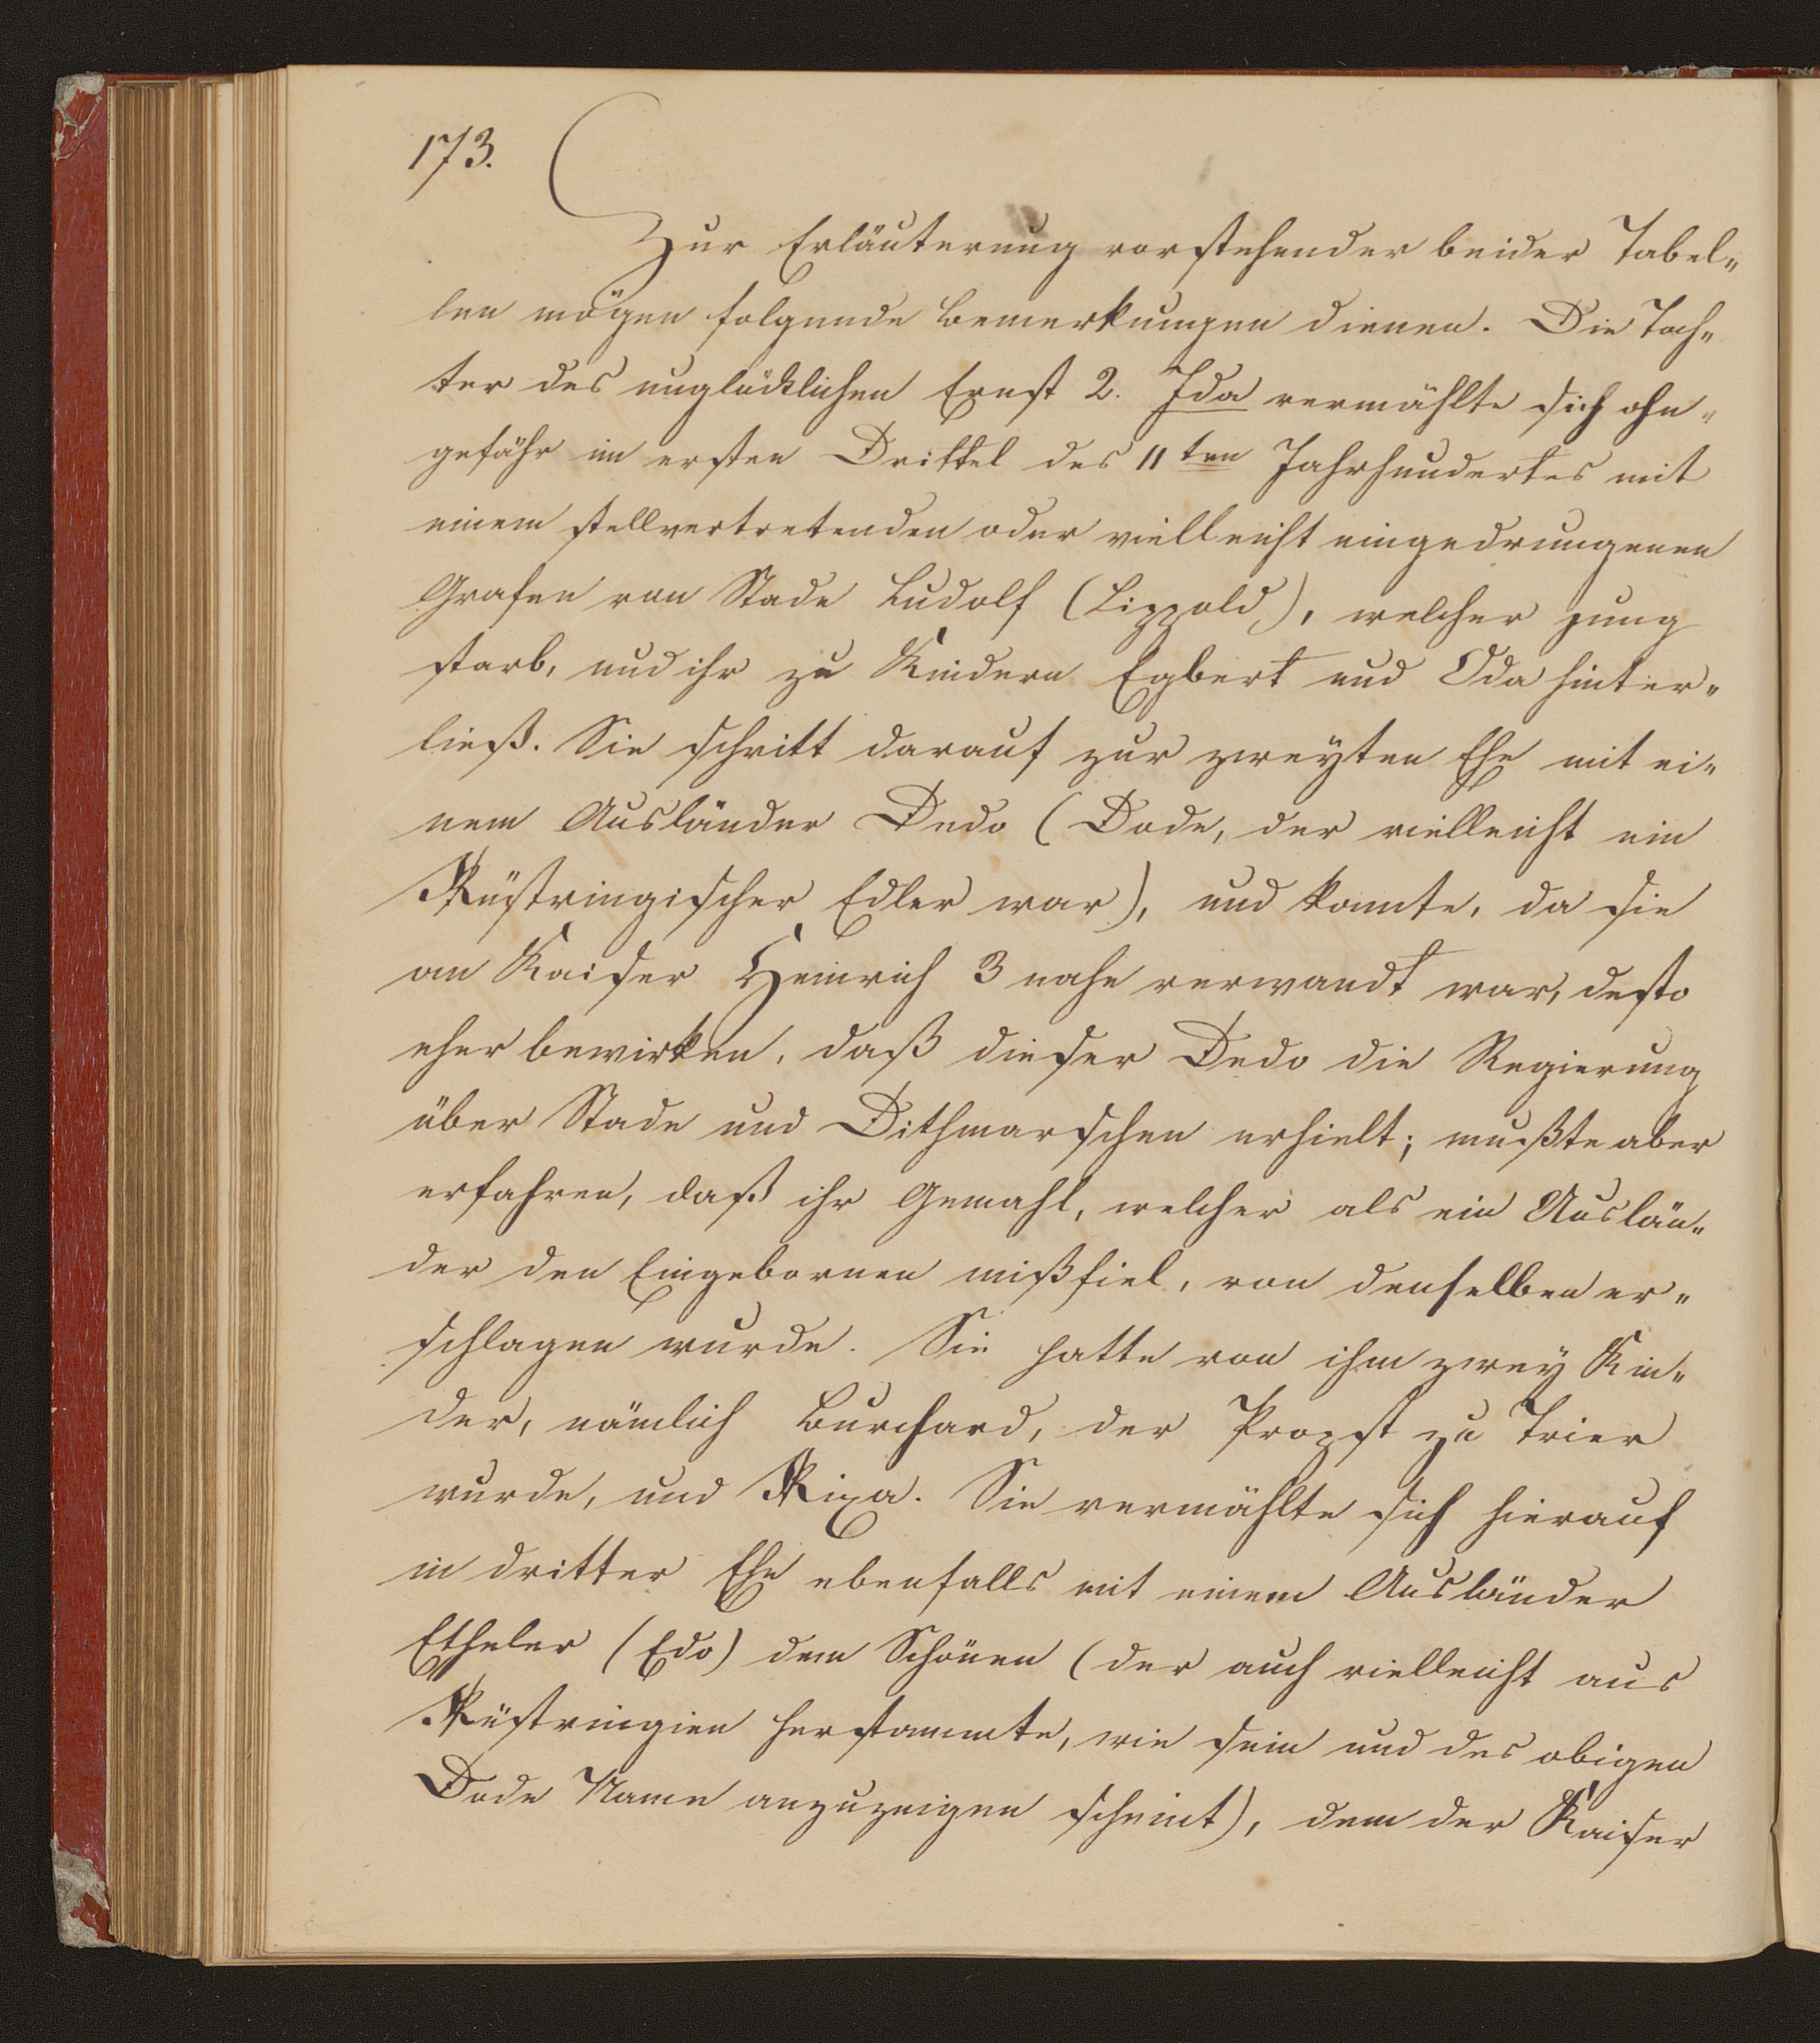 173.
Zur Erläuterung vorstehender beider Tabel„
len mögen folgende Bemerkungen dienen. Die Toch„
ter des unglücklichen Ernst 2. Ida vermählte sich ohn„
gefähr im ersten Drittel des 11ten Jahrhundertes mit
einem stellvertretenden oder vielleicht eingedrungenen
Grafen von Stade Ludolf (Lippold), welcher jung
starb, und ihr zu Kindern Egbert und Oda hinter„
ließ. Sie schritt darauf zur zweyten Ehe mit ei„
nem Ausländer Dedo (Dode, der vielleicht ein
Rüstringischer Edler war), und konnte, da sie
an Kaiser Heinrich 3 nahe verwandt war, desto
eher bewirken, daß dieser Dedo die Regierung
über Stade und Dithmarschen erhielt; mußte aber
erfahren, daß ihr Gemahl, welcher als ein Auslän„
der den Eingebornen mißfiel, von denselben er„
schlagen wurde. Sie hatte von ihm zwey Kin„
der, nämlich Burchard, der Propst zu Trier
wurde, und Rixa. Sie vermählte sich hierauf
in dritter Ehe ebenfalls mit einem Ausländer
Etheler (Edo) dem Schönen (der auch vielleicht aus
Rüstringien herstammte, wie sein und des obigen
Dode Name anzuzeigen scheint), dem der Kaiser